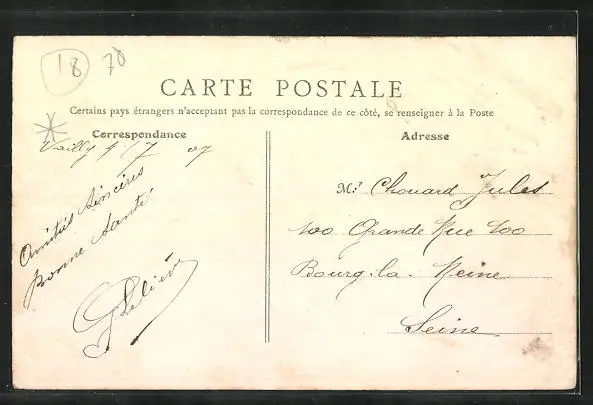 18 78
CARTE POSTALE
Certains pays étrangers n'acceptant pas la correspondance de ce côté, se renseigner à la Poste
Correspondance
Vailly 7 07
Amitiés Sincères
Bonne Santé
Adresse
M. Chouard Jules
100 Grande Rue 100
Bourg-la-Reine
Seine